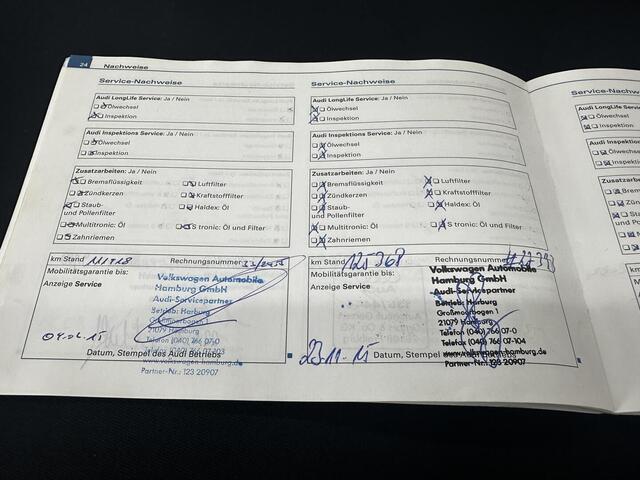 24 Nachweise
Service-Nachweise
Audi LongLife Service: Ja / Nein
Ölwechsel
Inspektion
Audi Inspektions Service: Ja / Nein
Ölwechsel
Inspektion
Zusatzarbeiten: Ja / Nein
Bremsflüssigkeit Luftfilter
Zündkerzen Kraftstofffilter
Staub- Haldex: Öl
und Pollenfilter
Multitronic: Öl S tronic: Öl und Filter
Zahnriemen
km Stand Rechnungsnummer
Mobilitätsgarantie bis:
Anzeige Service
Volkswagen Automobile
Hamburg GmbH
Audi-Servicepartner
Betrieb: Harburg
Großmoorbogen 1
21079 Hamburg
Telefon (040) 766 07-0
Datum, Stempel des Audi Betriebs
www.volkswagen-hamburg.de
Partner-Nr.: 123 20907
Service-Nachweise
Audi LongLife Service: Ja / Nein
Ölwechsel
Inspektion
Audi Inspektions Service: Ja / Nein
Ölwechsel
Inspektion
Zusatzarbeiten: Ja / Nein
Bremsflüssigkeit Luftfilter
Zündkerzen Kraftstofffilter
Staub- Haldex: Öl
und Pollenfilter
Multitronic: Öl S tronic: Öl und Filter
Zahnriemen
km Stand Rechnungsnummer
Mobilitätsgarantie bis:
Anzeige Service
Volkswagen Automobile
Hamburg GmbH
Audi-Servicepartner
Betrieb: Harburg
Großmoorbogen 1
21079 Hamburg
Telefon (040) 766 07-0
Telefax (040) 766 07-104
23-11-15 Datum, Stempel
www.volkswagen-hamburg.de
Partner-Nr.: 123 20907
Service-Nachweise
Audi LongLife Service
Ölwechsel
Inspektion
Audi Inspektion
Ölwechsel
Inspektion
Zusatzarbeiten